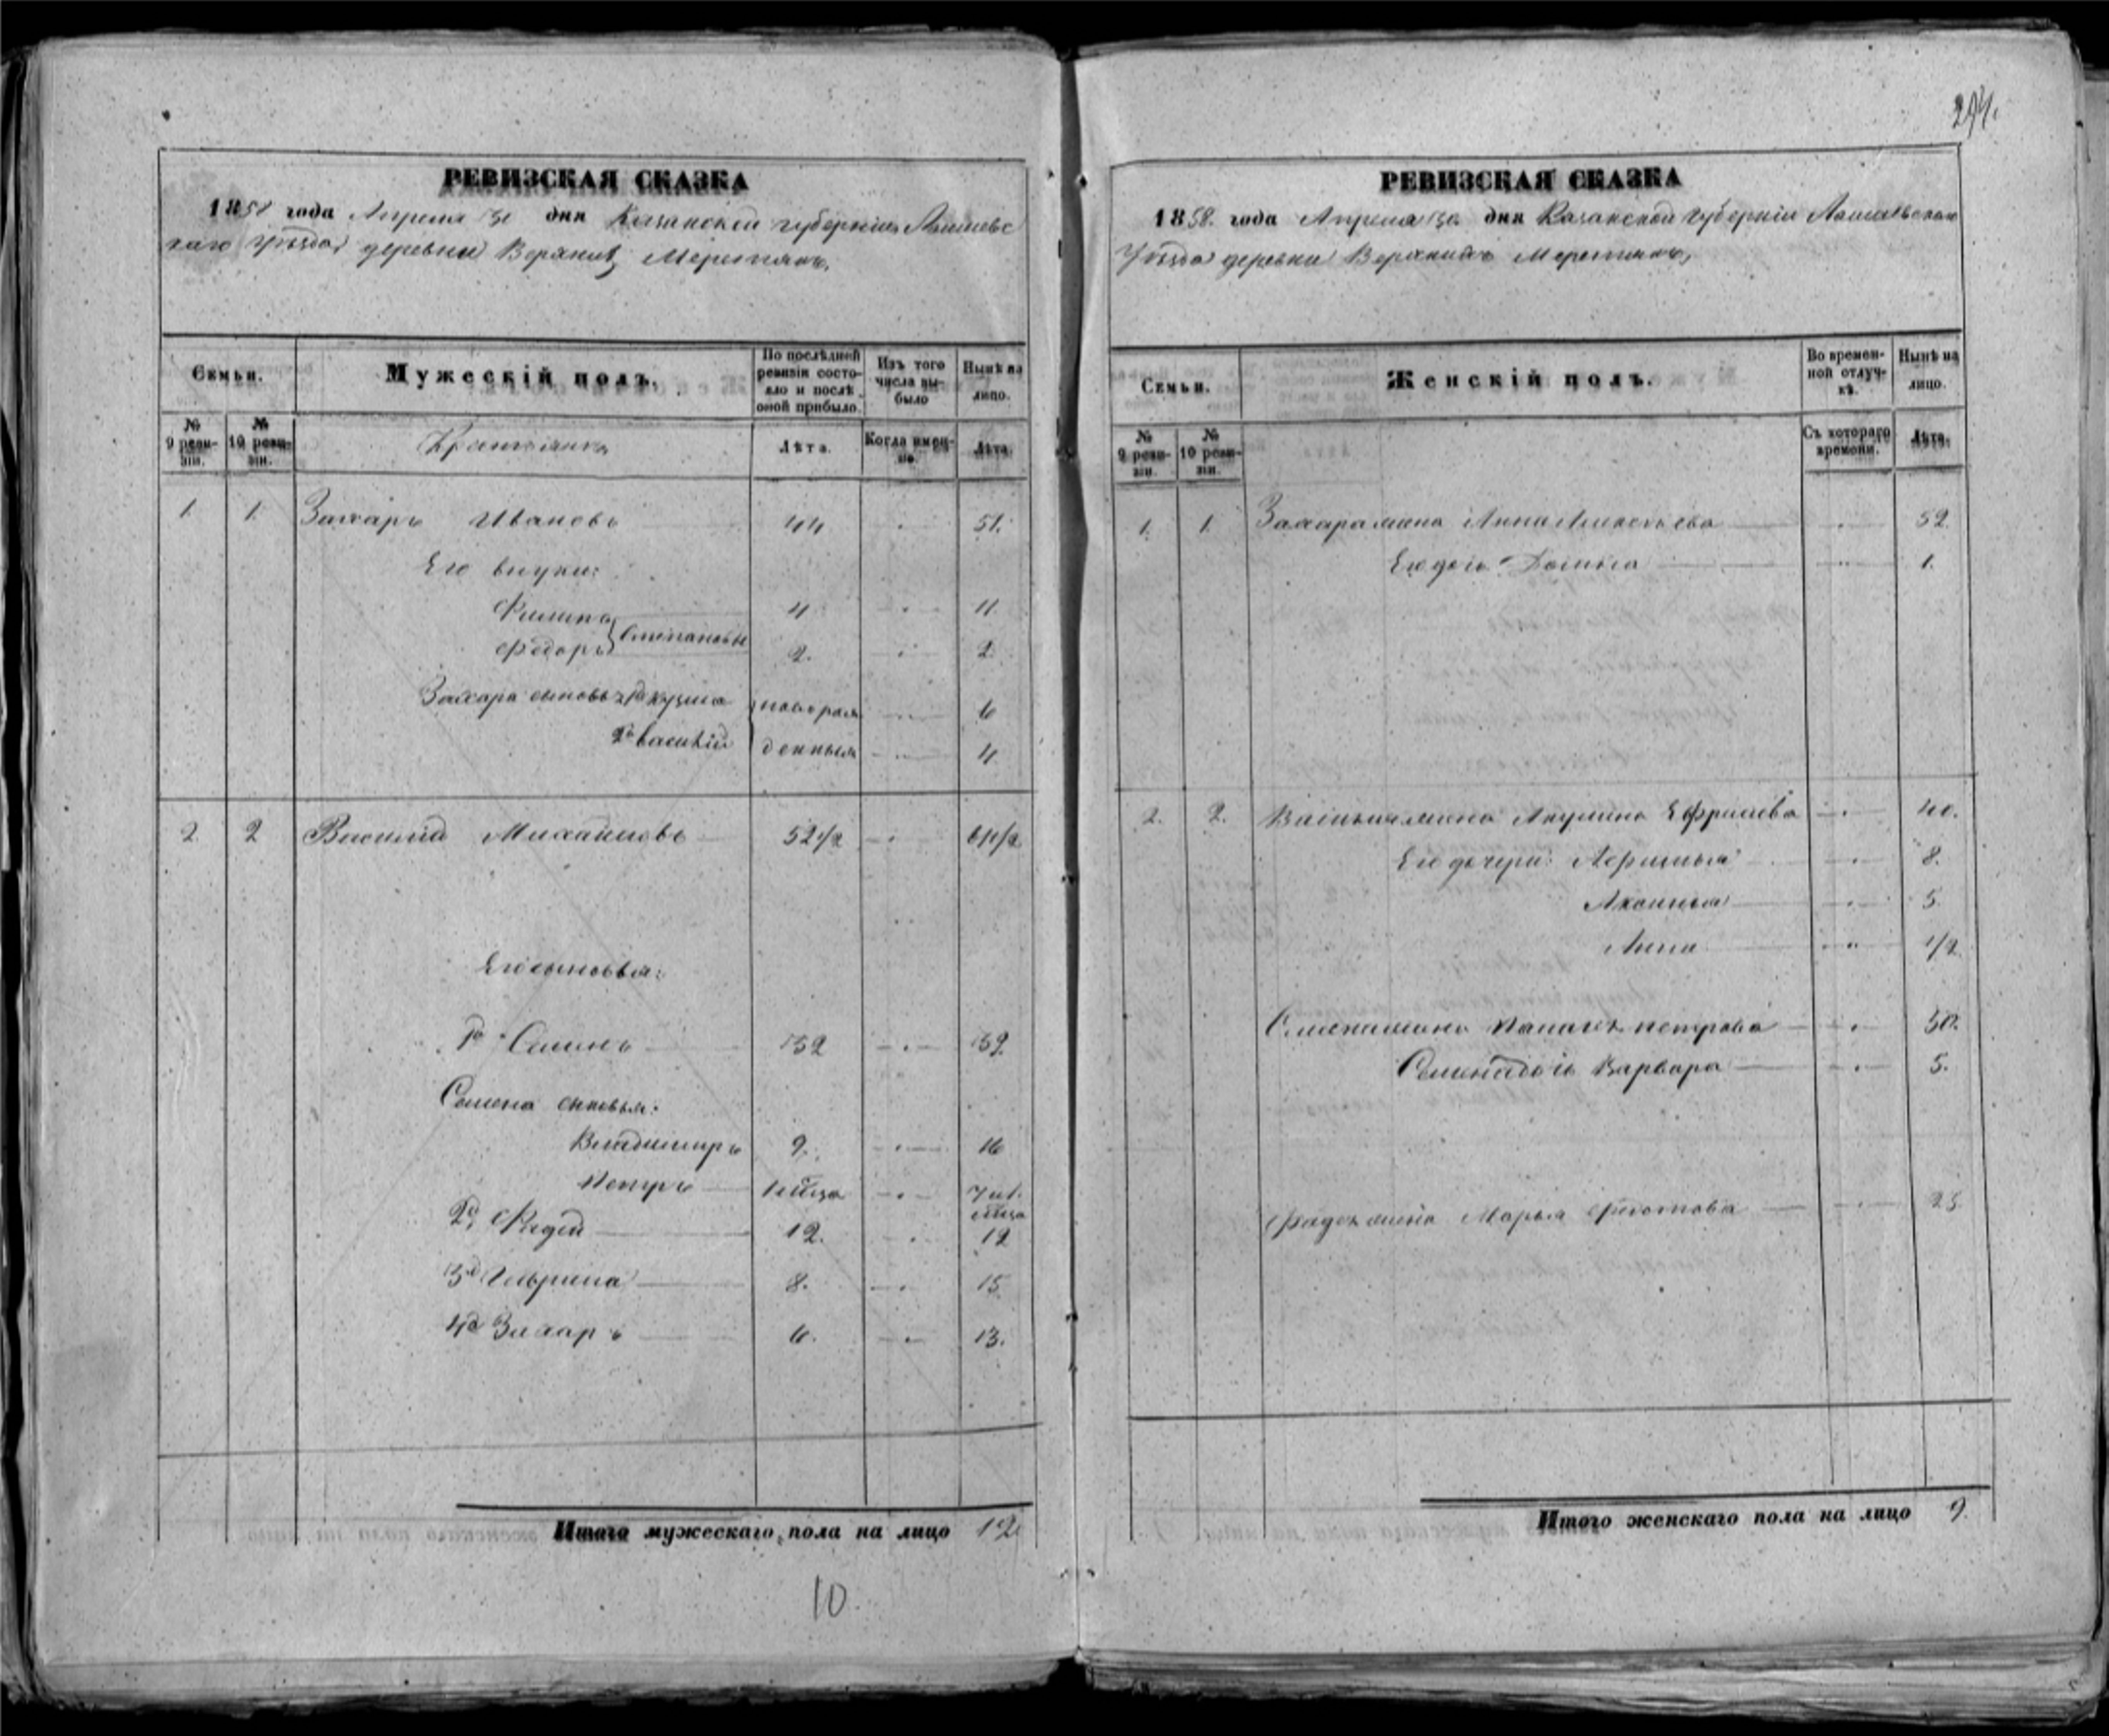 294.
РЕВИЗСКАЯ СКАЗКА
1858 года Апреля дня Казанской губерніи Лаишевс
каго уѣзда, деревни Верхних Меретякъ,
Семьи.
Мужескій полъ.
По послѣдней ревизіи состояло и послѣ оной прибыло.
Изъ того числа выбыло
Нынѣ на лицо.
№ 9 ревизіи.
№ 10 ревизіи.
Крестьянъ
Лѣта.
Когда именно.
Лѣта.
1. 1. Захаръ Ивановъ 44 51.
Его внуки:
Филипъ 4 11.
Федоръ Степановы 2. 2.
Захара сыновья 1й Кузма новорож 6
2й Василій денныя 4
2. 2 Василій Михайловъ 52 1/2
Его сыновья:
1й Семенъ 32 39.
Семена сыновья:
Владимиръ 9. 16
Петръ
2й Фадей 12. 19
3й Гаврила 8. 15
4й Захаръ 6. 13.
Итого мужескаго пола на лицо 12
10
РЕВИЗСКАЯ СКАЗКА
1858. года Апреля дня Казанской губерніи Лаишевскаго
Уѣзда деревни Верхнихъ Меретякъ,
Семьи.
Женскій полъ.
Во временной отлучкѣ.
Нынѣ на лицо.
№ 9 ревизіи.
№ 10 ревизіи.
Съ котораго времени.
Лѣта.
1. 1. Захара жена Анна 52.
Его дочь 1.
2. 2. Василья жена Акулина Ефремова 40.
Его дочери: 8.
Аксинья 5.
Анна 1/2
Семена жена Петрова
Семена дочь Варвара 5.
Фадея жена Марья Федотова 25
Итого женскаго пола на лицо 9.